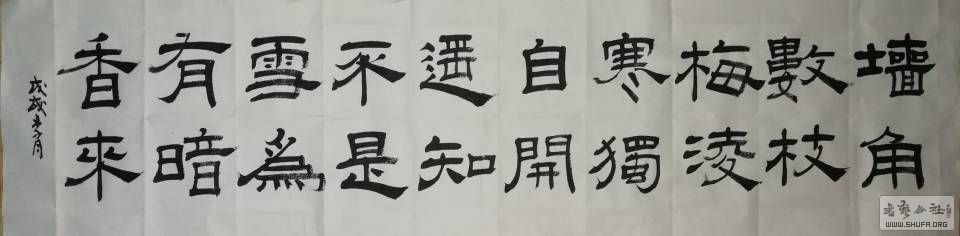 墙角
數枝
梅淩
寒獨
自開
遥知
不是
雪為
有暗
香來
戊戌 月
书艺公社
WWW.SHUFA.ORG